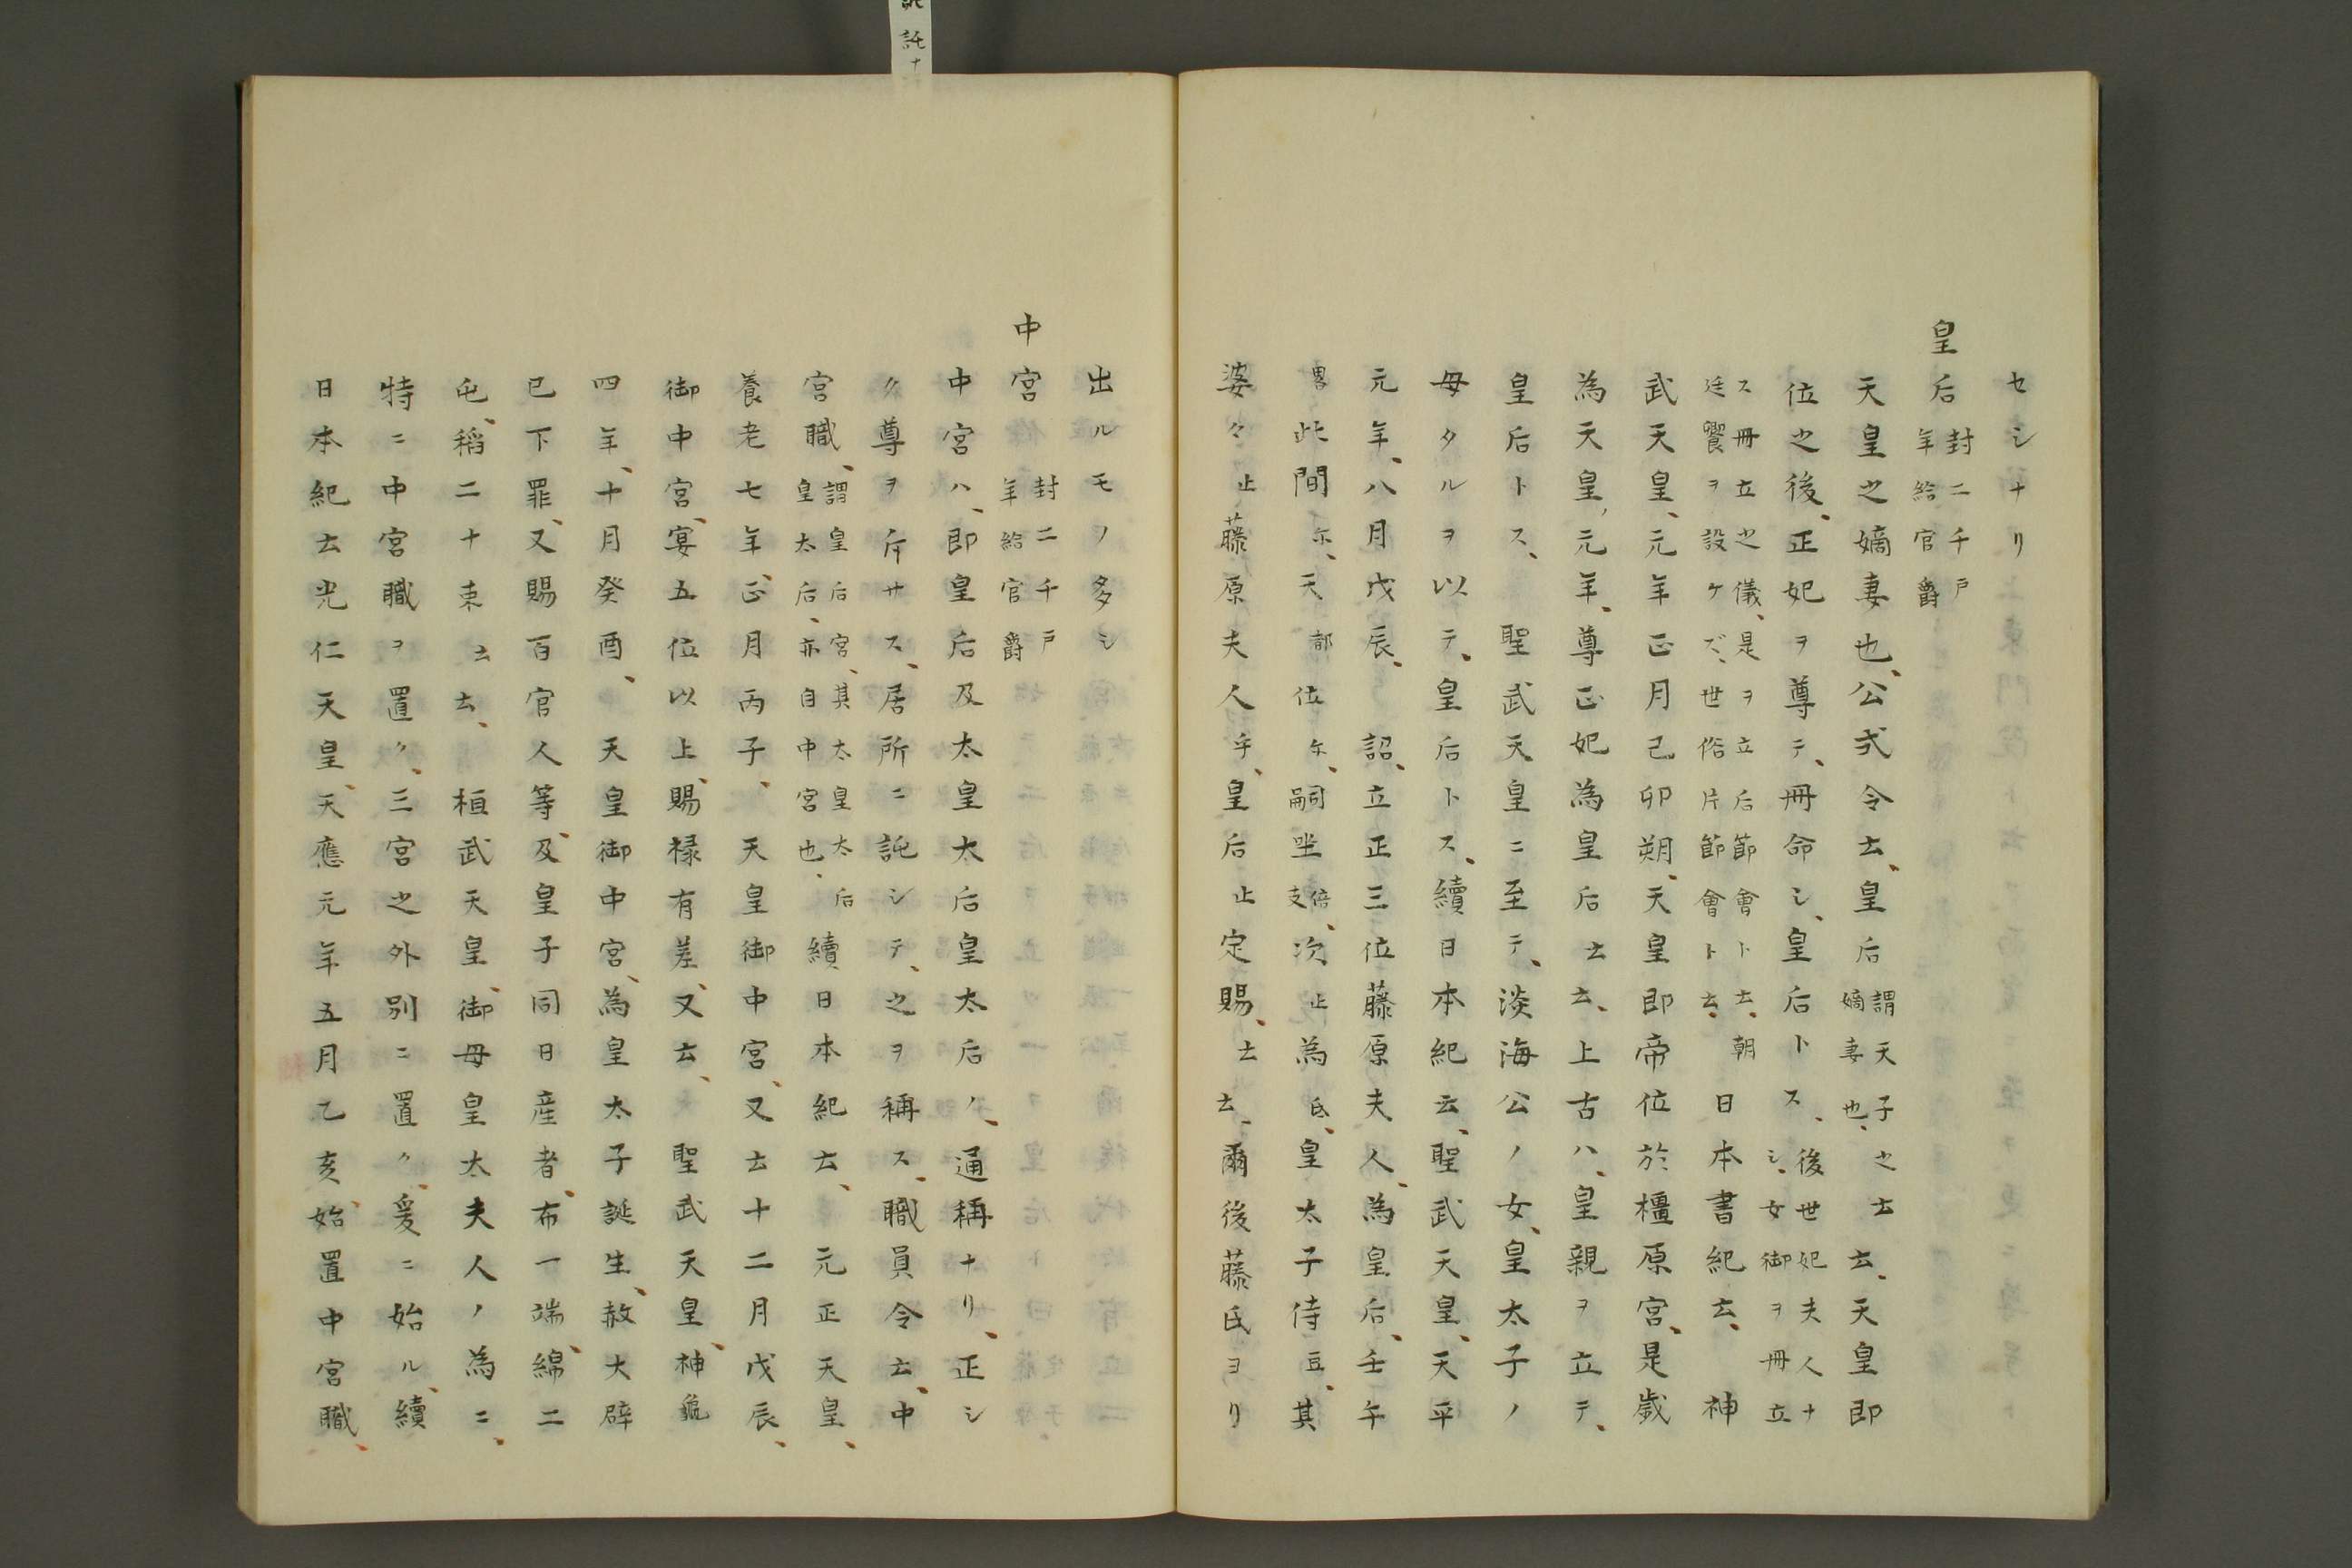 セシナリ
皇后 封二千戸 年給官爵
天皇之嫡妻也、公式令云、皇后 謂天子之嫡妻也、 云云、天皇即
位之後、正妃ヲ尊テ、冊命シ、皇后トス、 後世妃夫人ナシ、女御ヲ冊立
ス冊立之儀、是ヲ立后節會ト云、朝廷饗ヲ設ケズ、世俗片節會ト云、 日本書紀云、 神
武天皇、元年正月己卯朔、天皇即帝位於橿原宮、是歳
為天皇、元年、尊正妃為皇后云云、上古ハ、皇親ヲ立テ、
皇后トス、 聖武天皇ニ至テ、淡海公ノ女、皇太子ノ
母タルヲ以テ、皇后トス、續日本紀云、聖武天皇、天平
元年、八月戊辰、 詔、立正三位藤原夫人、為皇后、壬午
畧 此間尓、天都位尓、嗣坐倍支、次止為氐、皇太子侍豆、其
婆々止藤原夫人乎、皇后止定賜、云云、爾後藤氏ヨリ
出ルモノ多シ
中宮 封二千戸 年給官爵
中宮ハ、即皇后及太皇太后皇太后ノ、通稱ナリ、正シ
ク尊ヲ斥サス、居所ニ託シテ、之ヲ稱ス、職員令云、中
宮職、 謂皇后宮、其太皇太后皇太后、亦自中宮也、 續日本紀云、 元正天皇、
養老七年、正月丙子、 天皇御中宮、又云十二月戊辰、
御中宮、宴五位以上、賜禄有差、又云、 聖武天皇、神龜
四年、十月癸酉、 天皇御中宮、為皇太子誕生、赦大辟
已下罪、又賜百官人等、及皇子同日産者、布一端、綿二
屯、稲二十束云云、 桓武天皇、御母皇太夫人ノ為ニ、
特ニ中宮職ヲ置ク、三宮之外別ニ置ク、爰ニ始ル、續
日本紀云光仁天皇、天應元年五月乙亥、始置中宮職、